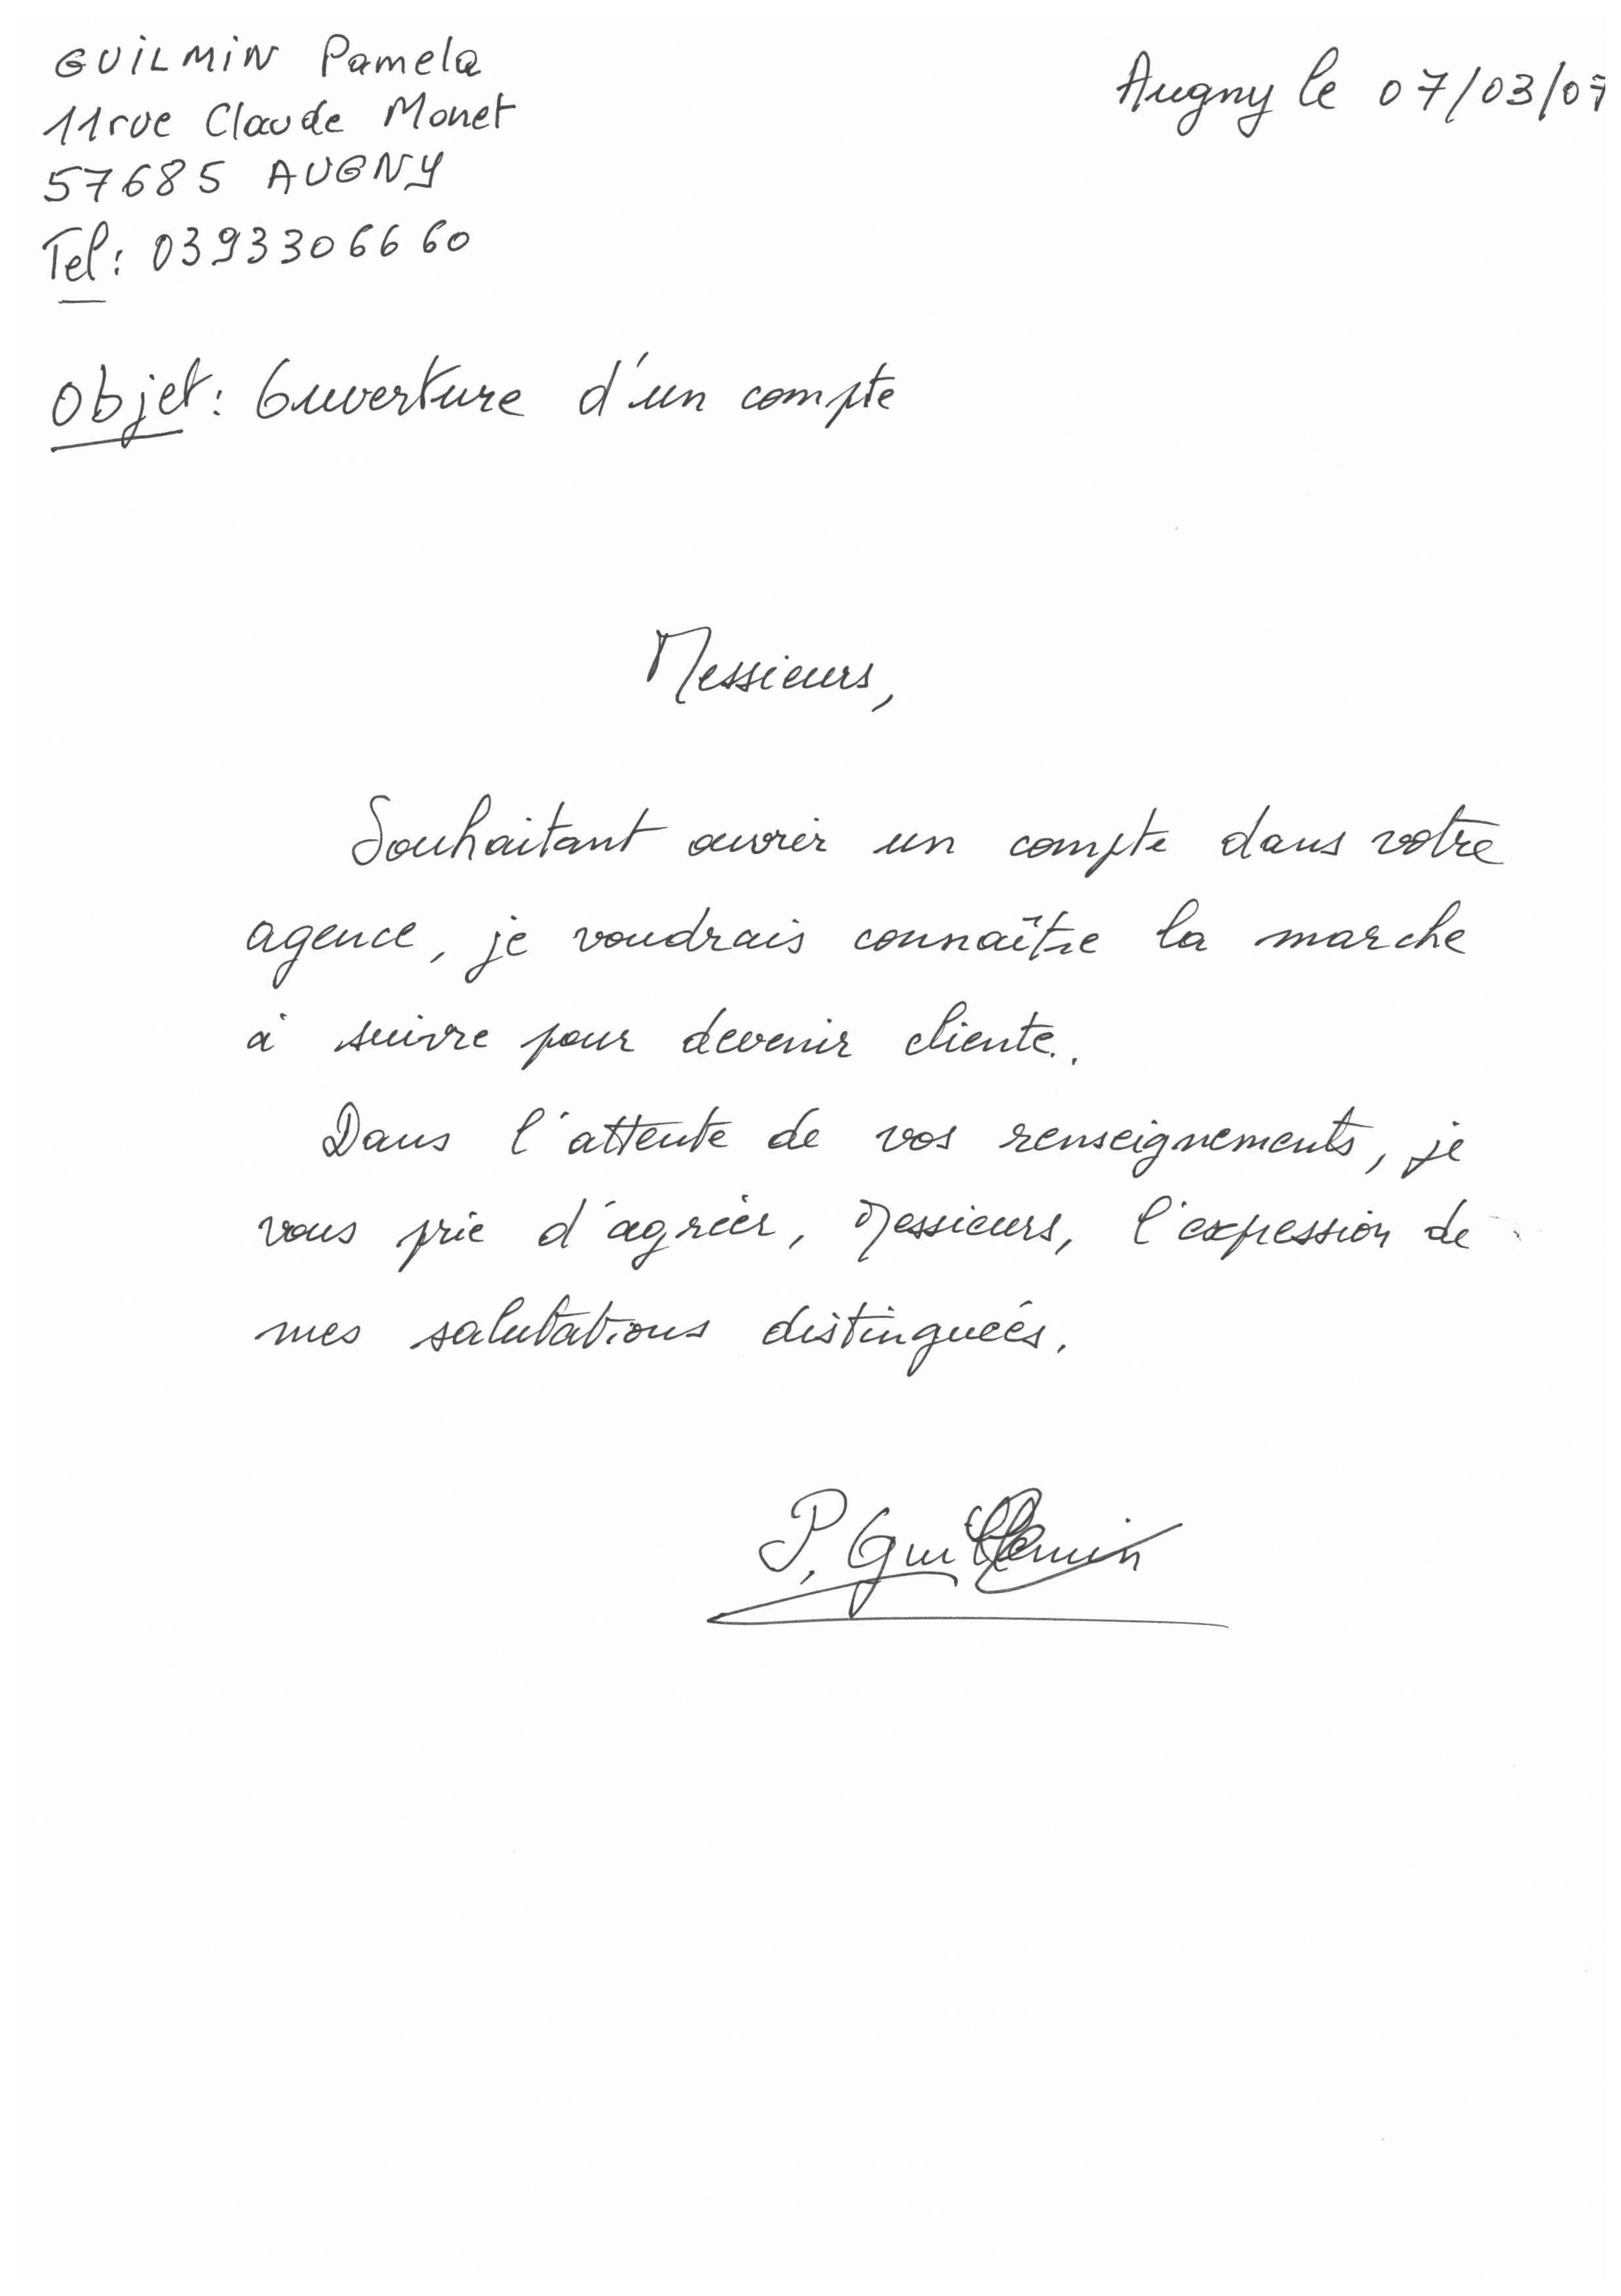 GUILMIN Pamela
11 rue Claude Monet
57685 AUGNY
Tel: 0393306660
Augny le 07/03/07
Objet: Ouverture d'un compte
Messieurs,
Souhaitant ouvrir un compte dans votre
agence, je voudrais connaître la marche
à suivre pour devenir cliente.
Dans l'attente de vos renseignements, je
vous prie d'agréer, Messieurs, l'expession de
mes salutations distinguées.
P. Guillemin